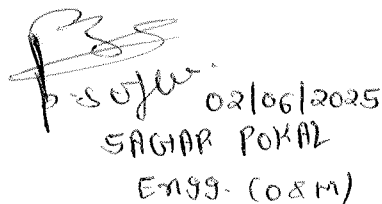 02/06/2025
SAGAR POKAL
Engg. (O&M)